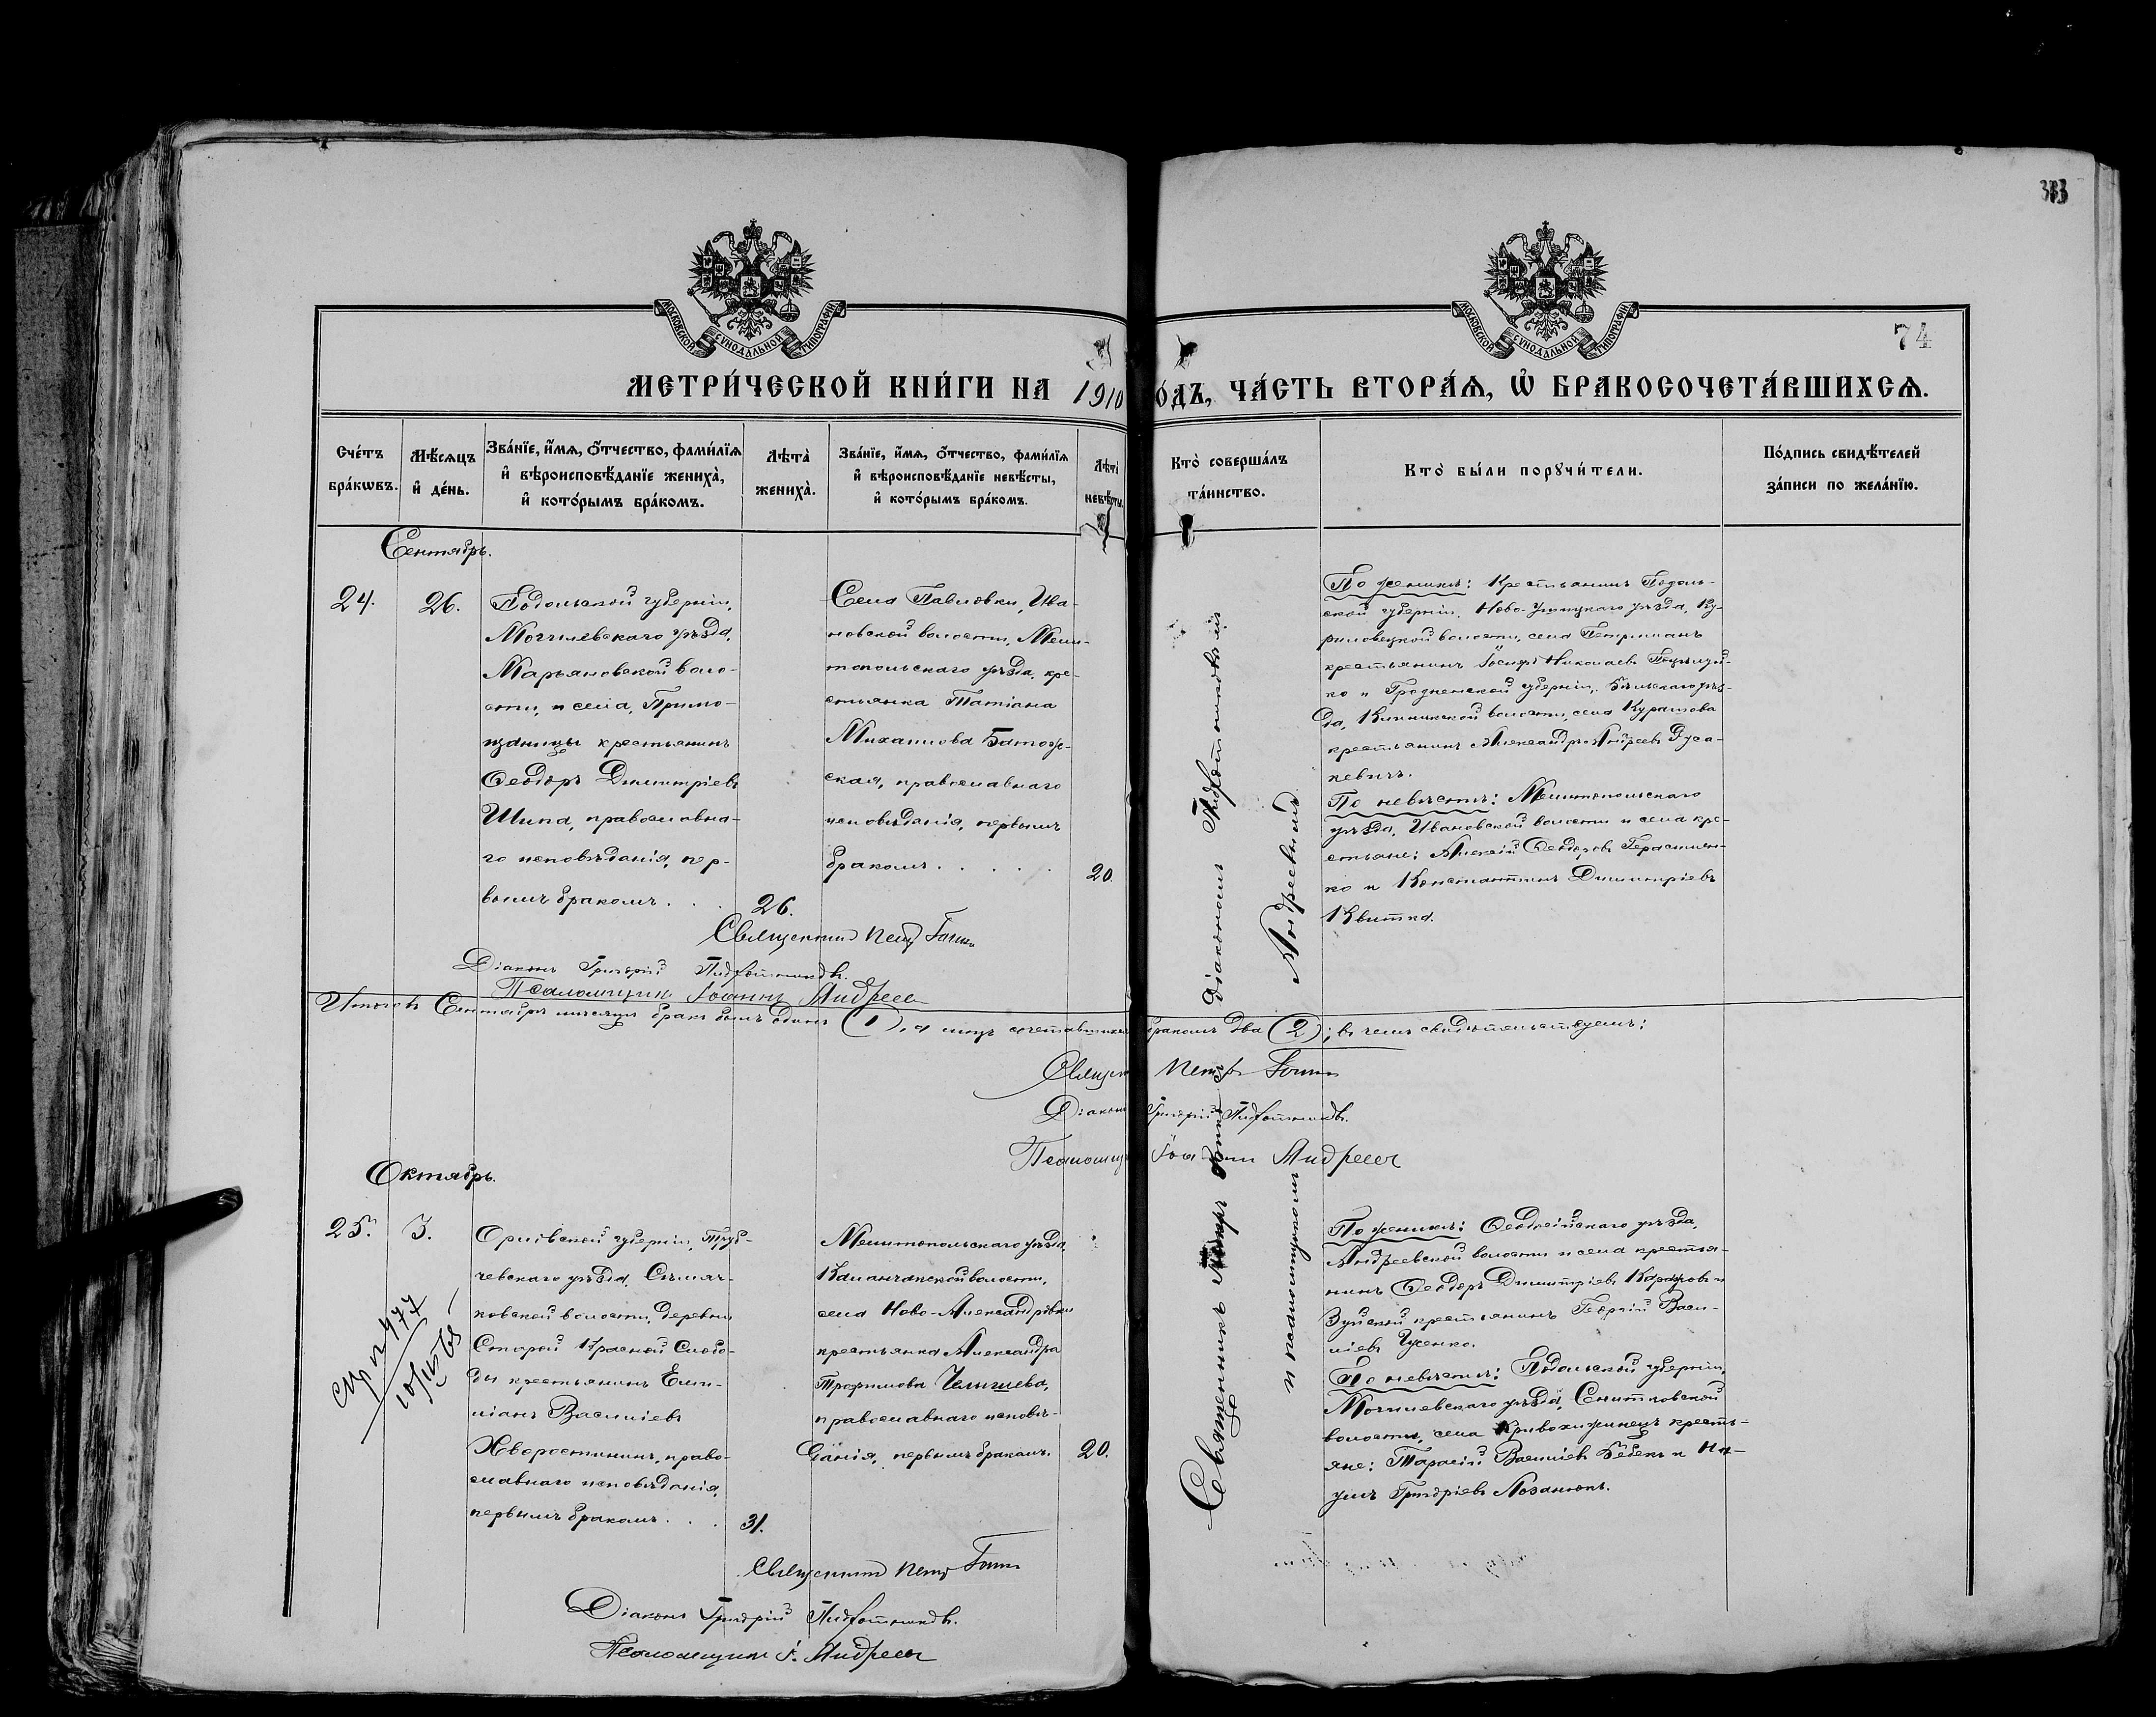 333
МОСКОВСКОЙ СУНОДАЛЬНОЙ ТИПОГРАФІИ
МОСКОВСКОЙ СУНОДАЛЬНОЙ ТИПОГРАФІИ
74
МЕТРИ́ЧЕСКОЙ КНИ́ГИ НА 1910 ОДЪ, ЧА́СТЬ ВТОРА́Я, Ѡ БРАКОСОЧЕТА́ВШИХСЯ.
Сче́тъ бра́кѡвъ.
Мѣ́сяцъ и де́нь.
Зва́нїе, и́мя, о́тчество, фами́лїя
и вѣроисповѣ́данїе жениха̀,
и кото́рымъ бра́комъ.
Лѣта̀ жениха̀.
Зва́нїе, и́мя, о́тчество, фами́лїя
и вѣроисповѣ́данїе невѣ́сты,
и кото́рымъ бра́комъ.
Лѣта̀ невѣ́сты.
Кто̀ соверша́лъ
та́инство.
Кто̀ бы́ли порꙋчи́тели.
По́дпись свидѣ́телей
за́писи по жела́нїю.
Сентябрь.
24.
26.
Подольской губерніи,
Могилевскаго уѣзда,
Марьяновской воло-
сти, и села,
крестьянинъ
Ѳеодоръ Димитріевъ
Шипа, православна-
го исповѣданія, пер-
вымъ бракомъ . . .
26.
Села Павловки, Ива-
новской волости, Мели-
топольскаго уѣзда, кре-
стьянка Татіана
Михаилова Батож-
ская, православнаго
исповѣданія, первымъ
бракомъ . . . . .
20.
Священникъ Петръ
Діаконъ Григорій
Псаломщикъ Іоаннъ Андреевъ
Священникъ Петръ
діакономъ
и псаломщикомъ
Андреевымъ
По женихѣ: Крестьянинъ Подоль-
ской губерніи, Ново-Ушицкаго уѣзда, Ку-
риловецкой волости, села
крестьянинъ Іосифъ Николаевъ
ко и Гродненской губерніи, Бѣльскаго уѣз-
да, волости, села
крестьянинъ Александръ Андреевъ
кевичъ.
По невѣстѣ: Мелитопольскаго
уѣзда, Ивановской волости и села кре-
стьяне: Алексій Ѳеодоровъ Герасимен-
ко и Константинъ Димитріевъ
Квитка.
Итого въ Сентябрѣ мѣсяцѣ бракъ былъ одинъ (1), а лицъ сочетавшихся бракомъ два (2); въ чемъ свидѣтельствуемъ:
Священ Петръ
Діаконъ Григорій
Псаломщ Іоаннъ Андреевъ
Октябрь.
25.
3.
Орловской губерніи, Труб-
чевскаго уѣзда,
ковской волости, деревни
Старой Красной Слобо-
ды крестьянинъ Еми-
ліанъ Василіевъ
Хворостининъ, право-
славнаго исповѣданія,
первымъ бракомъ . . .
31.
Мелитопольскаго уѣзда,
Каланчакской волости,
села Ново-Александровки
крестьянка Александра
Трофимова
православнаго исповѣ-
данія, первымъ бракомъ.
20.
По женихѣ: Ѳеодосійскаго уѣзда,
Андреевской волости и села крестья-
нинъ Ѳеодоръ Димитріевъ и
Зуйской крестьянинъ Георгій Васи-
ліевъ Гусенко.
По невѣстѣ: Подольской губерніи,
Могилевскаго уѣзда, Снитковской
волости, села Кривохижинецъ кресть-
яне: Тарасій Василіевъ и На-
умъ Григоріевъ Лозанюкъ.
Священникъ Петръ
Діаконъ Григорій
Псаломщикъ І. Андреевъ